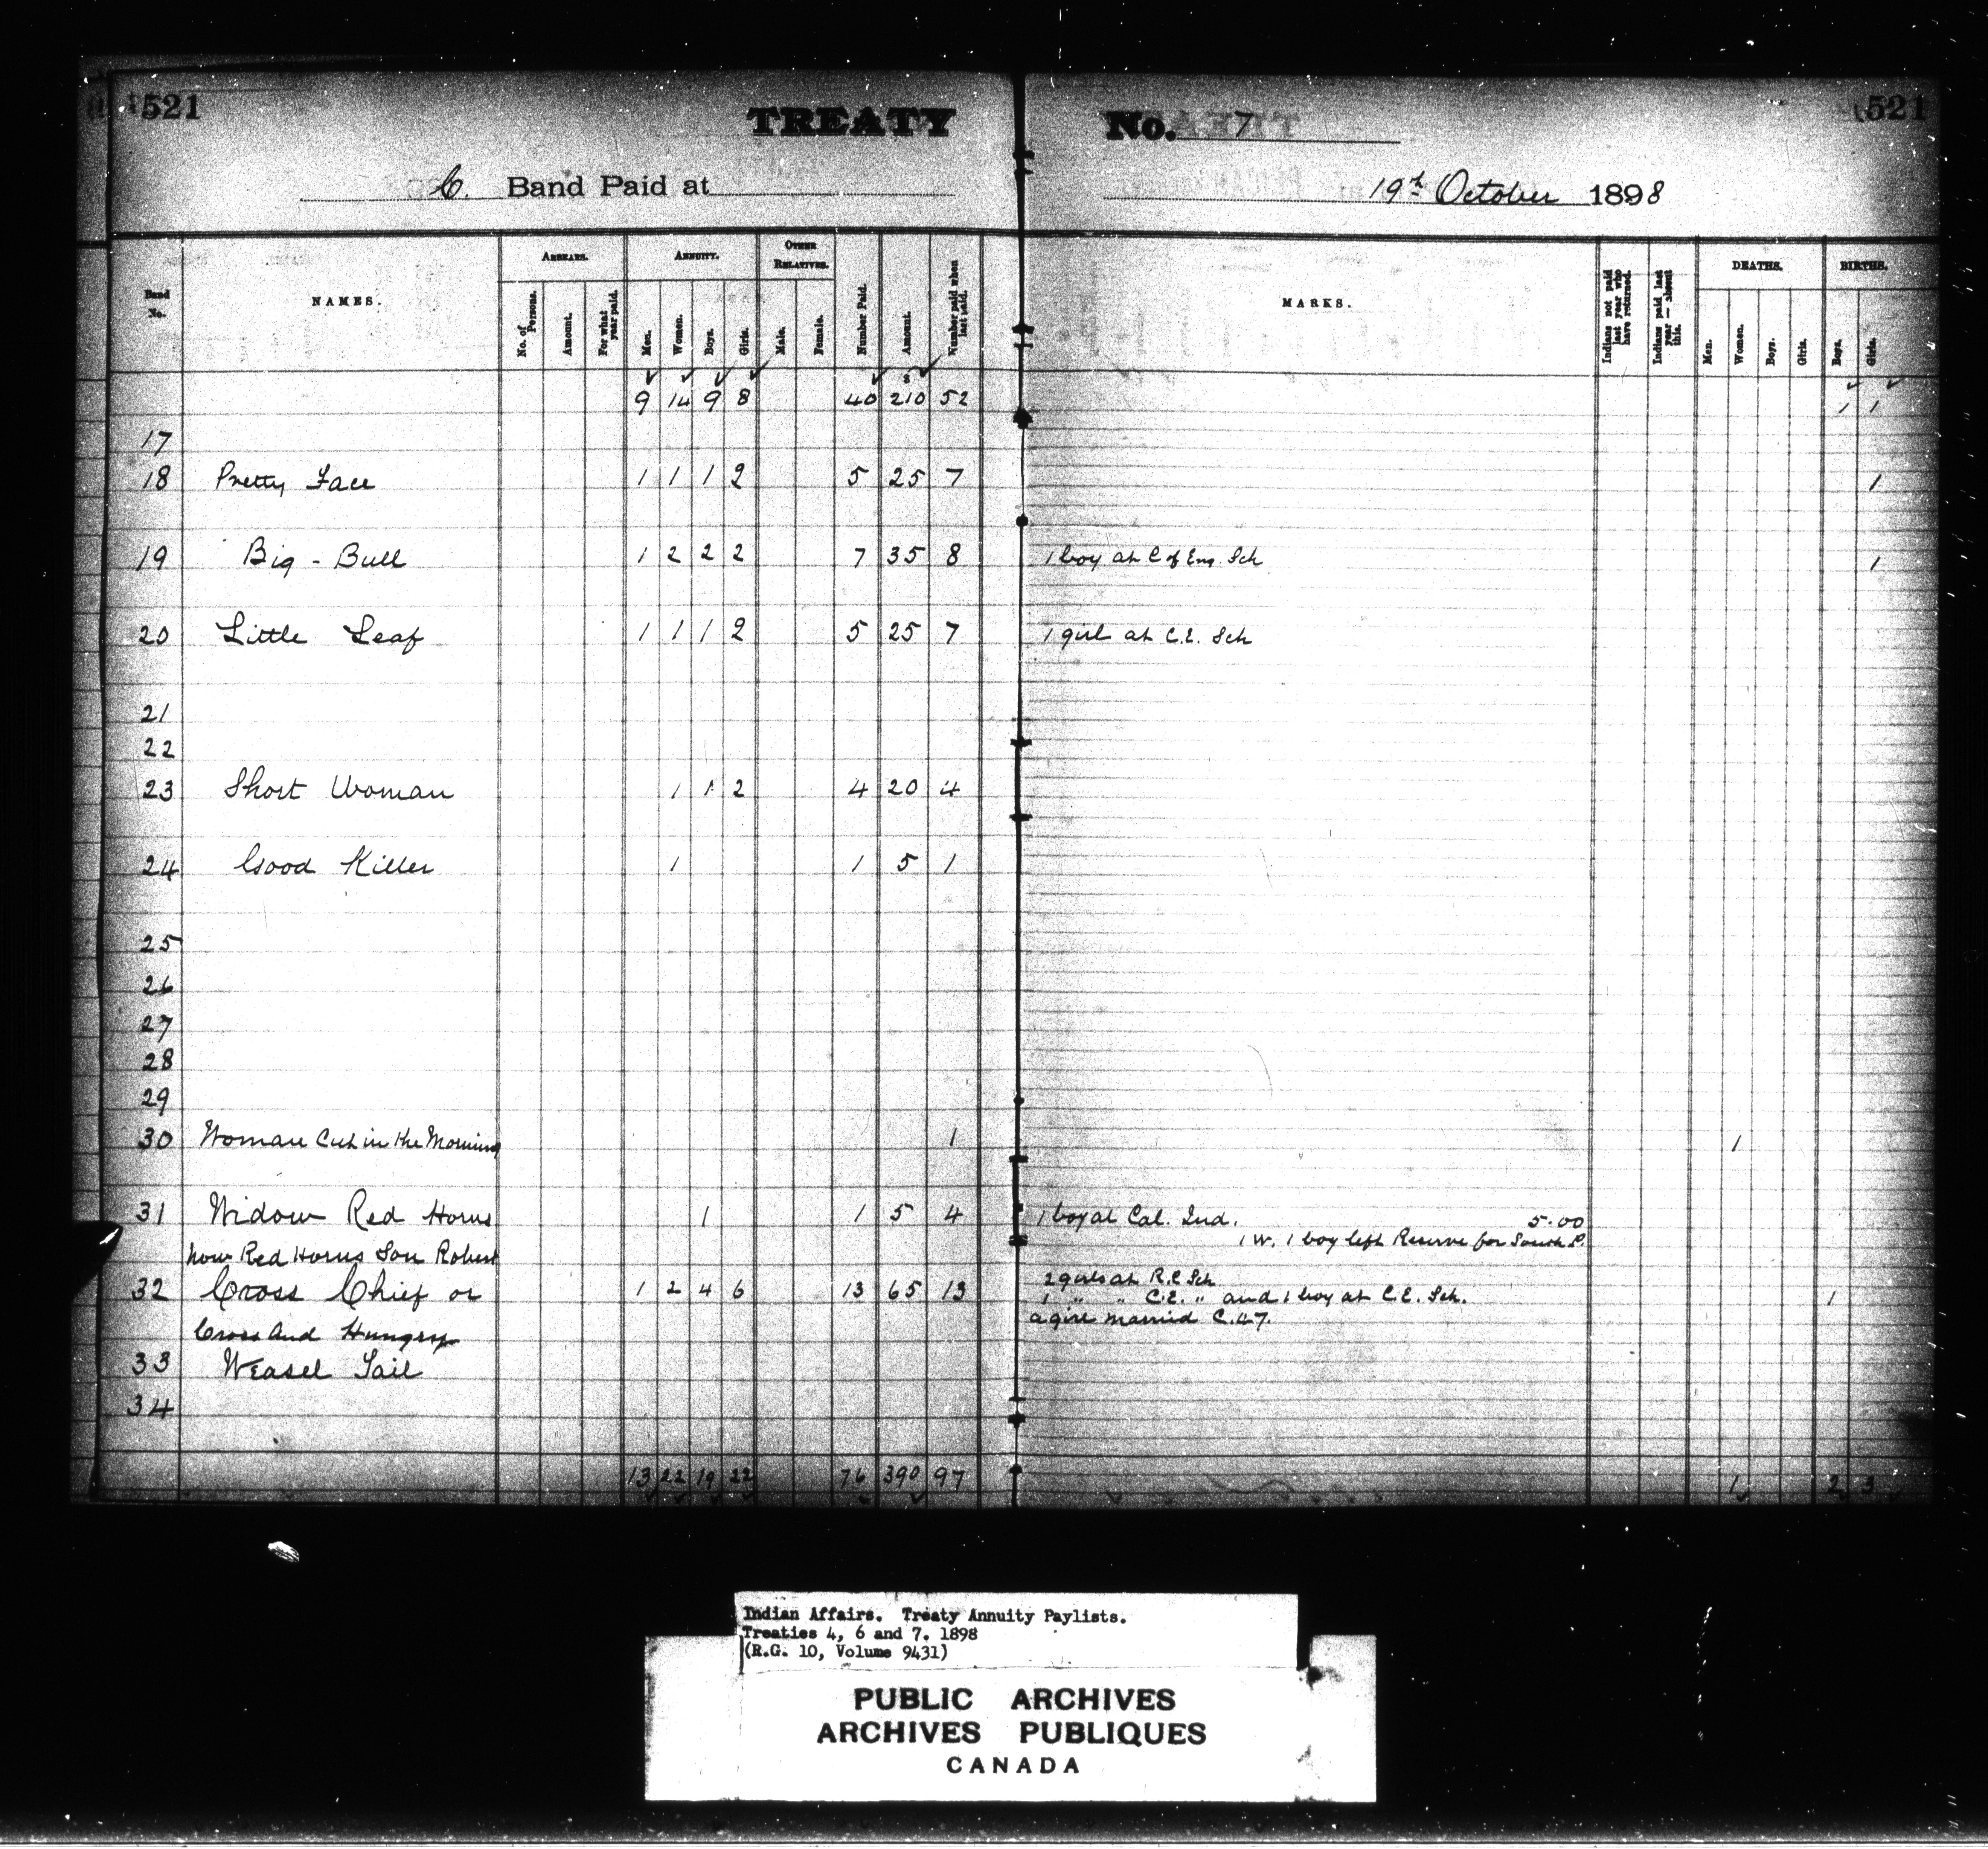 521 TREATY No. 7 521
C. Band Paid at 19th October 1898
Band No. NAMES. ARREARS. ANNUITY. OTHER RELATIVES. Number Paid. Amount. Number paid when last paid. MARKS. Indians not paid last year who have returned. Indians paid last year — absent this. DEATHS. BIRTHS.
No. of Persons. Amount. For what year paid. Men. Women. Boys. Girls. Male. Female. Men. Women. Boys. Girls. Boys. Girls.
9 14 9 8 40 210 52 1 1
17
18 Pretty Face 1 1 1 2 5 25 7 1
19 Big - Bull 1 2 2 2 7 35 8 1 boy at C of Eng. Sch 1
20 Little Leaf 1 1 1 2 5 25 7 1 girl at C.E. Sch
21
22
23 Short Woman 1 1 2 4 20 4
24 Good Killer 1 1 5 1
25
26
27
28
29
30 Woman Cut in the Morning 1 1
31 Widow Red Horns 1 1 5 4 1 boy at Cal. Ind. 5.00
now Red Horns Son Robert 1 W. 1 boy left Reserve for South P.
2 girls at R.C Sch
32 Cross Chief or 1 2 4 6 13 65 13 1 " " C.E. " and 1 boy at C.E. Sch. 1
a girl married C.27.
Cross and Hungry
33 Weasel Tail
34
13 22 19 22 76 390 97 1 2 3
Indian Affairs. Treaty Annuity Paylists.
Treaties 4, 6 and 7. 1898
(R.G. 10, Volume 9431)
PUBLIC ARCHIVES
ARCHIVES PUBLIQUES
CANADA